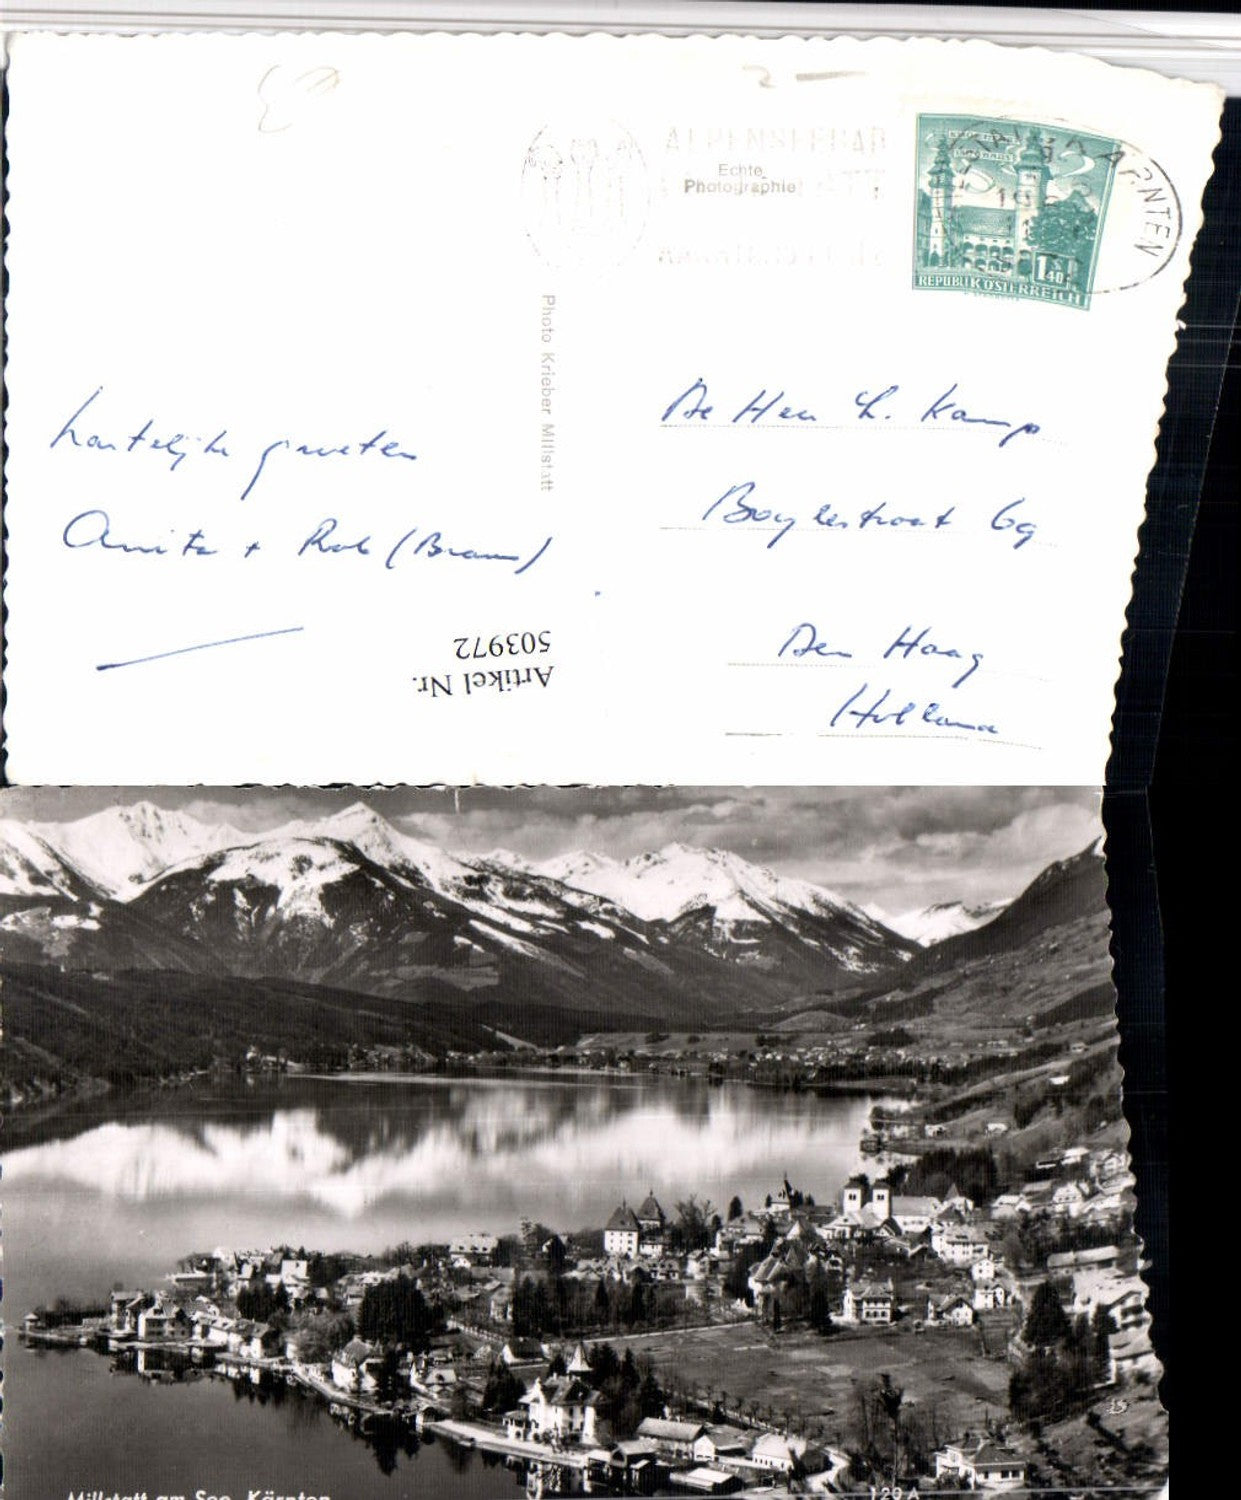 ALPENSEEBAD
Echte
Photographie
KÄRNTEN
1.40
REPUBLIK ÖSTERREICH
Photo Krieber Millstatt
hartelijke groeten
Anita + Rob (Braun)
De Heer L. Kamp
Boylestraat 69
Den Haag
Holland
Artikel Nr.
503972
Millstatt am See, Kärnten
129A